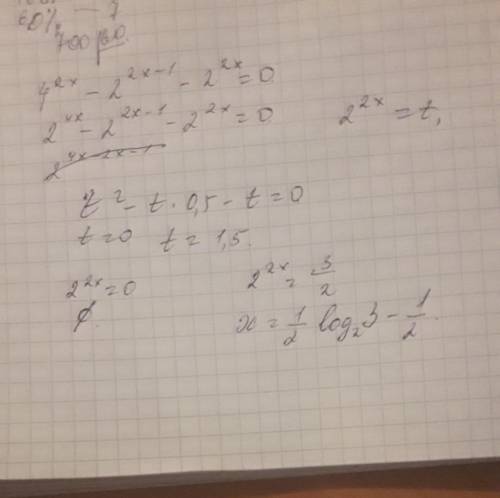 60% — 7
700 : 60
4^{2x} - 2^{2x-1} - 2^{2x} = 0
2^{4x} - 2^{2x-1} - 2^{2x} = 0    2^{2x} = t,
t^2 - t · 0,5 - t = 0
t = 0   t = 1,5.
2^{2x} = 0    2^{2x} = 3/2
∅.    x = 1/2 log_2 3 - 1/2.